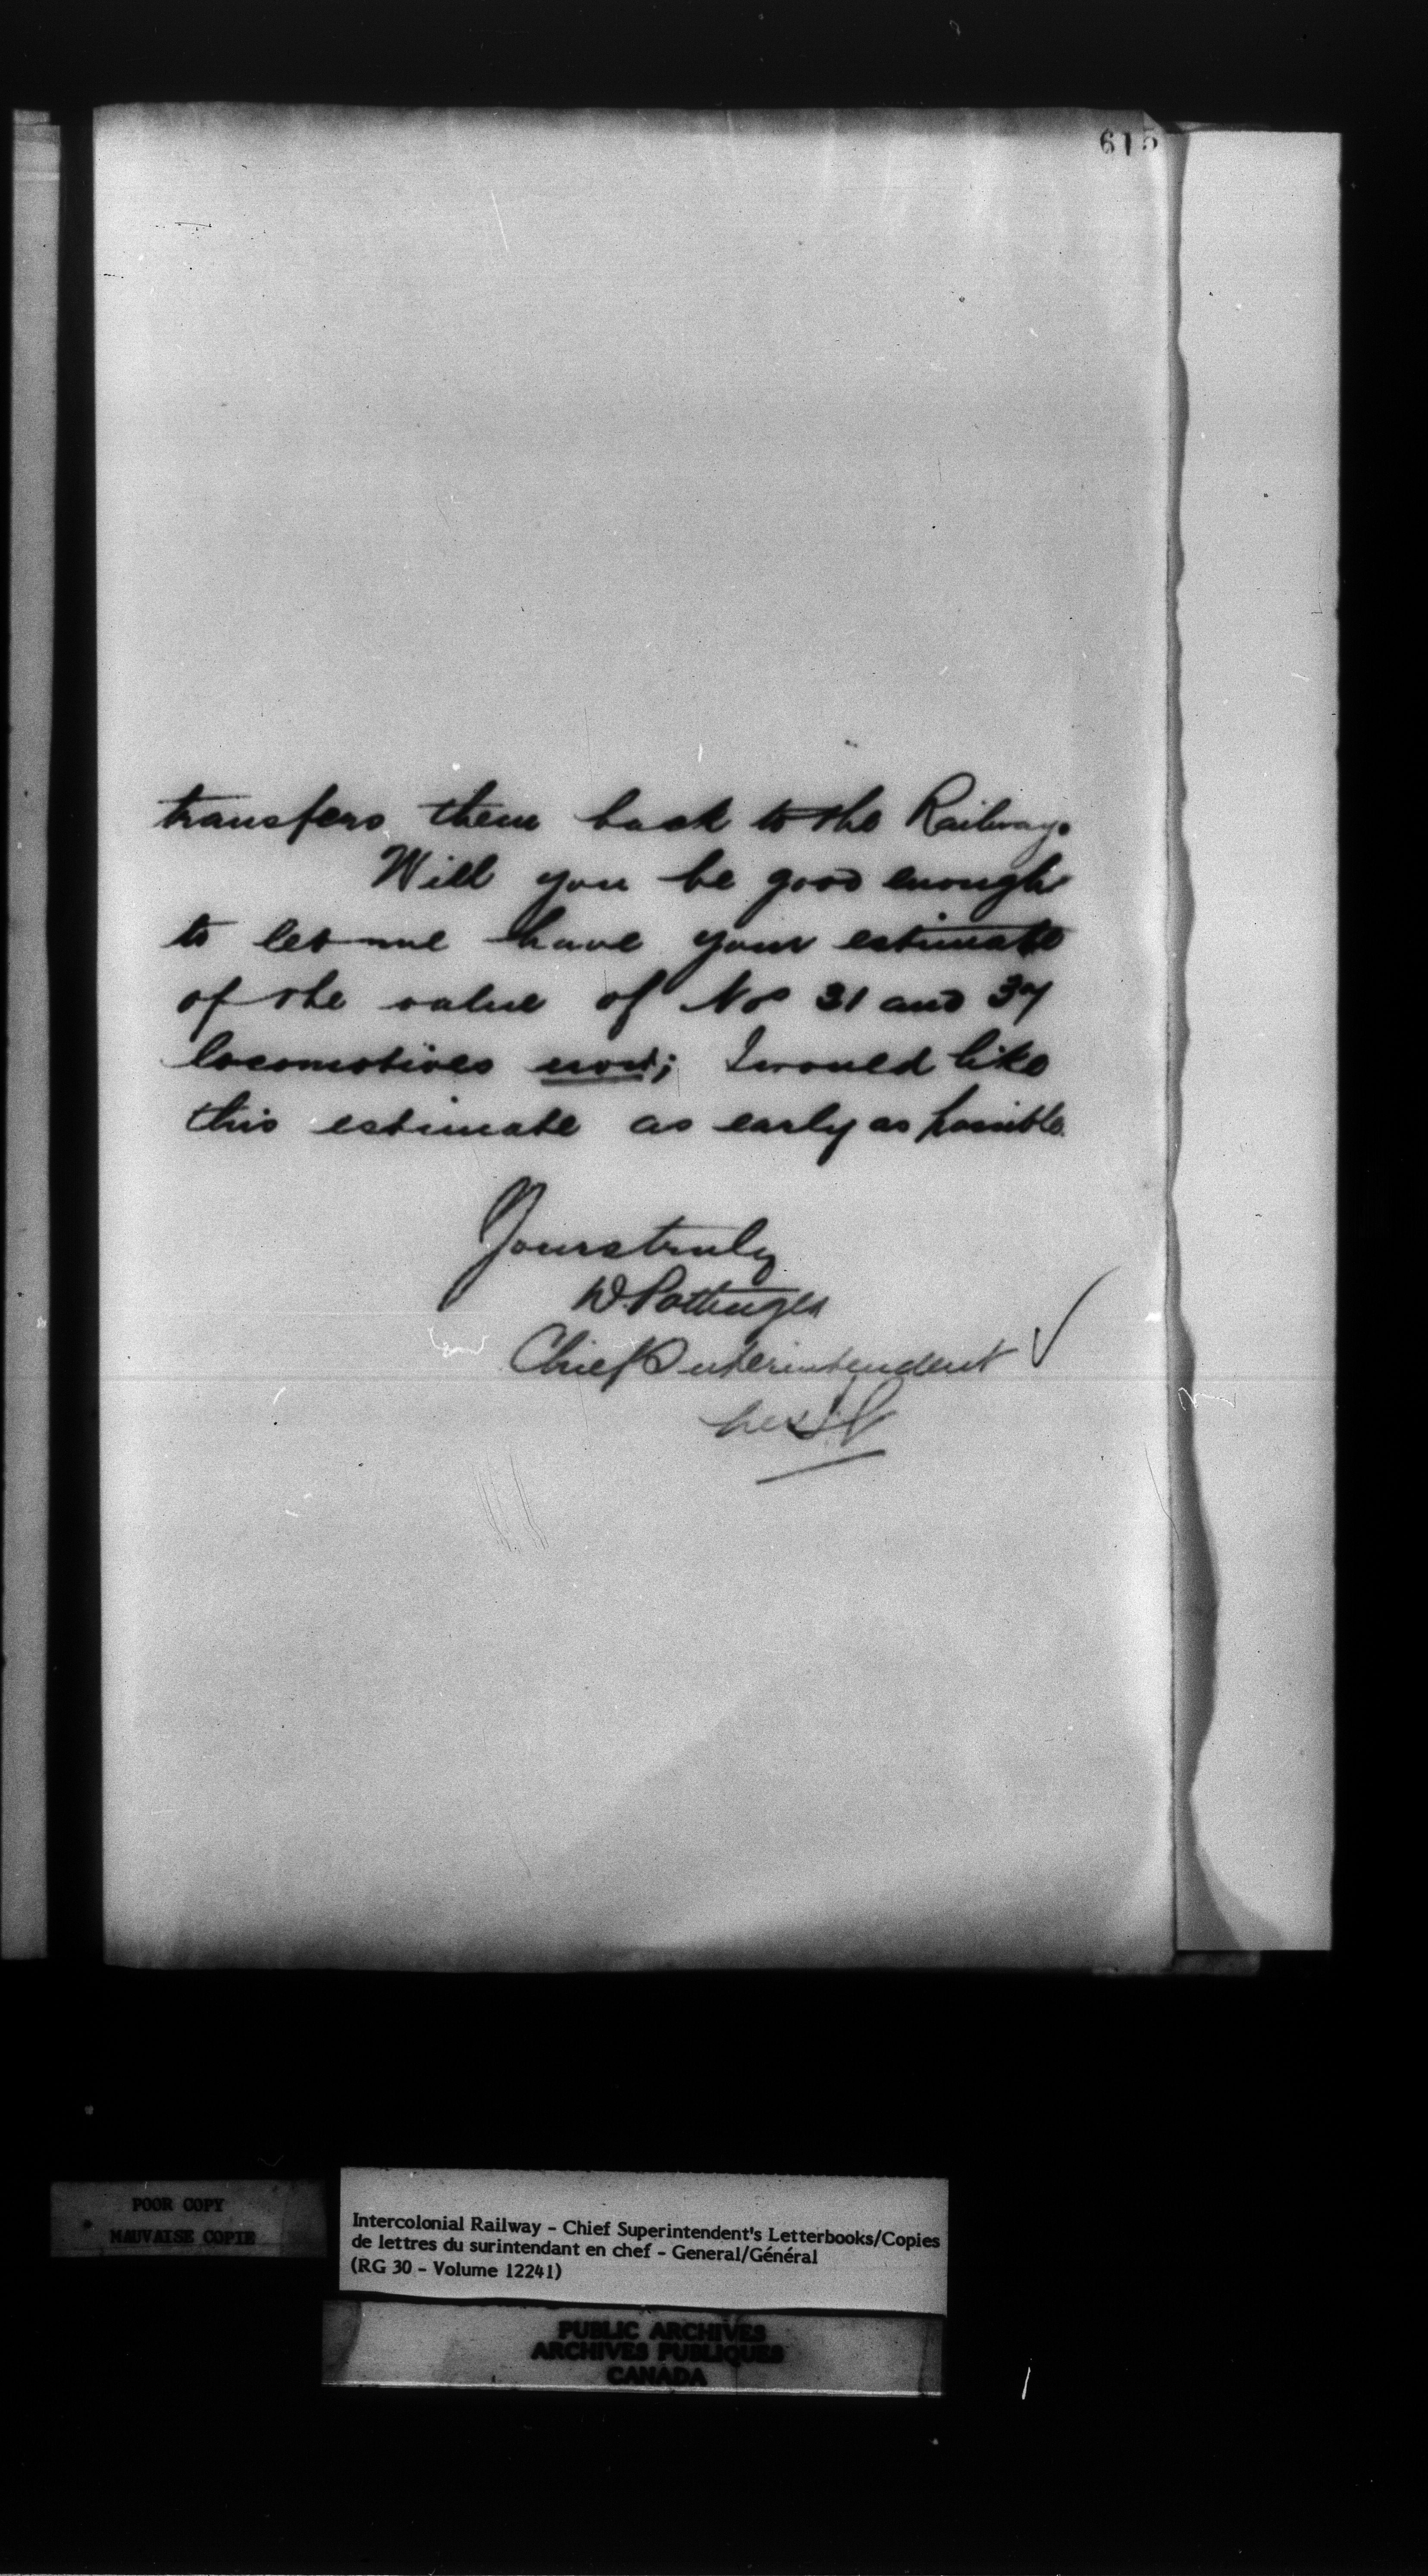 615
transfers them back to the Railway.
Will you be good enough
to let me have your estimate
of the value of Nos 31 and 37
locomotives now; I would like
this estimate as early as possible.
Yours truly
D. Pottinger
Chief Superintendent
per
POOR COPY
MAUVAISE COPIE
Intercolonial Railway - Chief Superintendent's Letterbooks/Copies
de lettres du surintendant en chef - General/Général
(RG 30 - Volume 12241)
PUBLIC ARCHIVES
ARCHIVES PUBLIQUES
CANADA